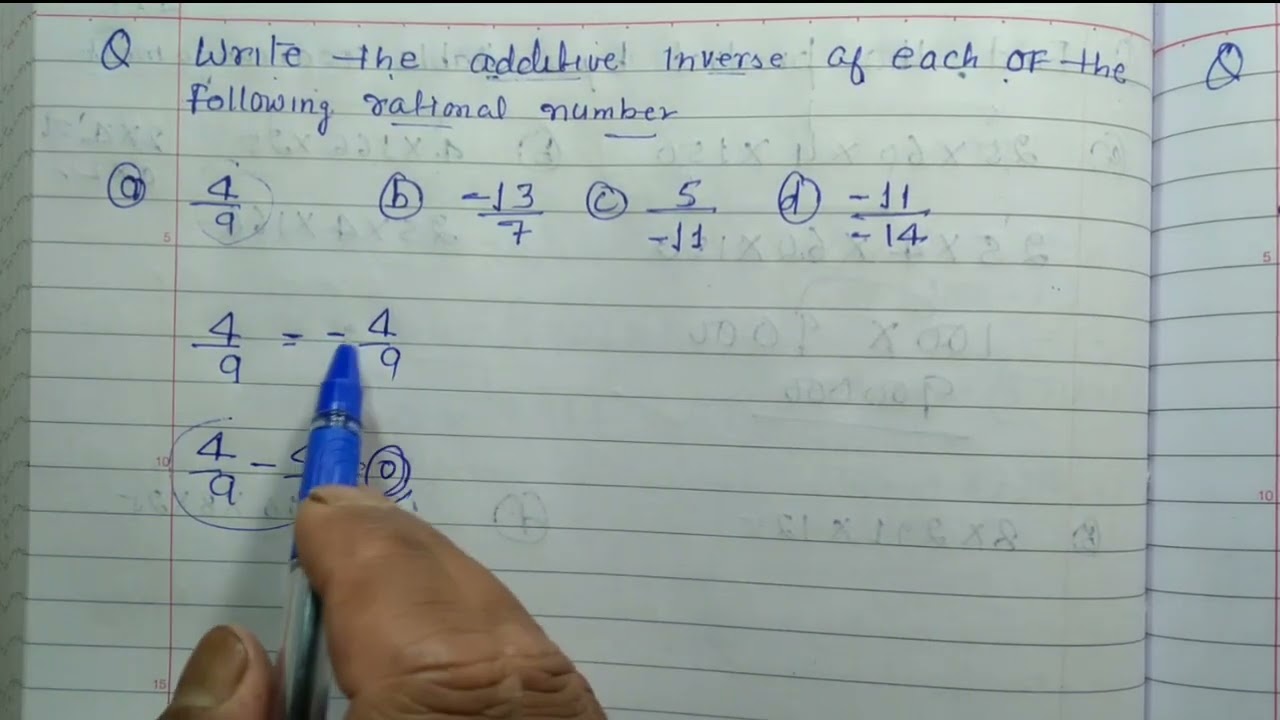 Q Write the additive inverse of each OF the
Following rational number
(a) 4/9 (b) -13/7 (c) 5/-11 (d) -11/-14
4/9 = -4/9
4/9 - 0
Q
5
10
15
5
10